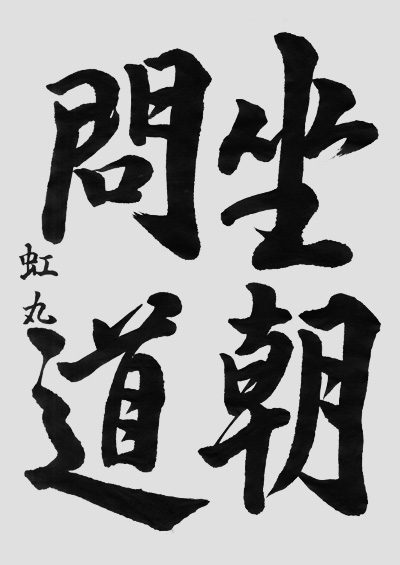 坐朝
問道
虹丸